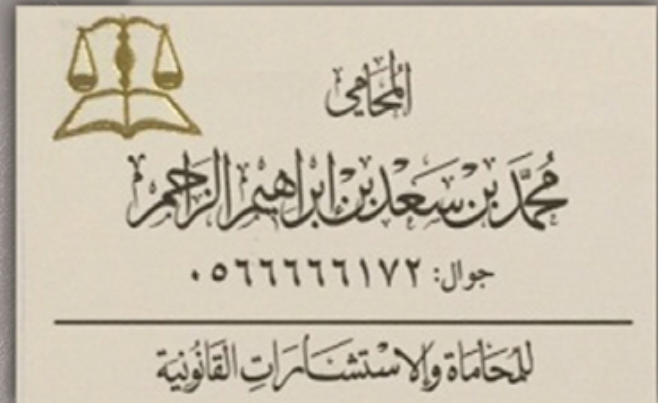 المحامي
محمد بن سعد بن ابراهيم الزاحم
جوال: ٠٥٦٦٦٦٦١٧٢
للمحاماة والاستشارات القانونية